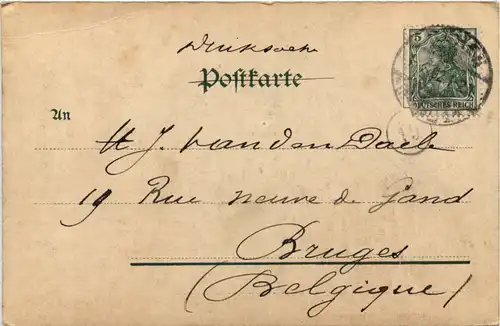 Drucksache
Postkarte
5
DEUTSCHES REICH
An
J. van den Daele
19 Rue neuve de Gand
Bruges
(Belgique)